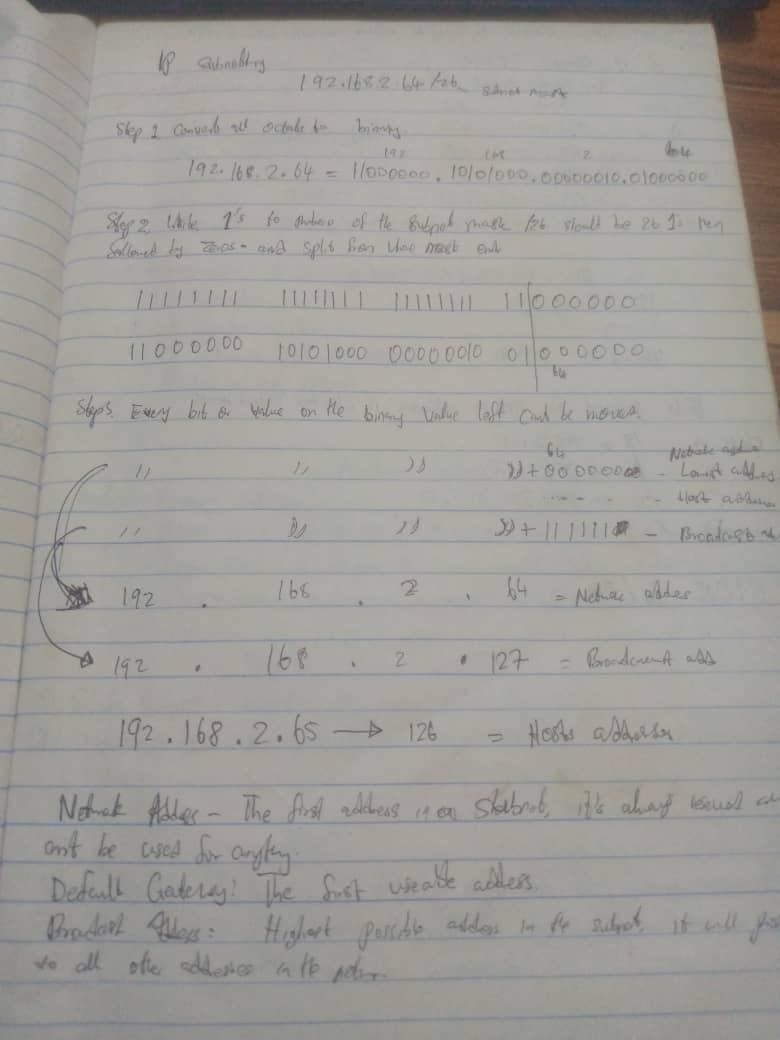 IP Subnetting
192.168.2.64 /26 subnet mask
Step 1 Convert all octate to binary.
192 168 2 64
192.168.2.64 = 11000000.10101000.00000010.01000000
Step 2 Write 1's to of the Subnet mask /26 should be 26 1's then
followed by zeros - and split from the mask end
11111111 11111111 11111111 11|000000
11000000 10101000 00000010 01|000000
64
Step 3. Every bit or value on the binary value left can't be moved.
64 Network
" " " "+000000 - Lowest address
.... - Host
" " " "+111111 - Broadcast
192 . 168 . 2 . 64 = address
192 . 168 . 2 . 127 = add
192.168.2.65 → 126 = Hosts
Network - The first address in a, it's always
can't be used for
Default Gateway: The first useable address.
Highest possible address in the subnet, it will
to all other addresses in the